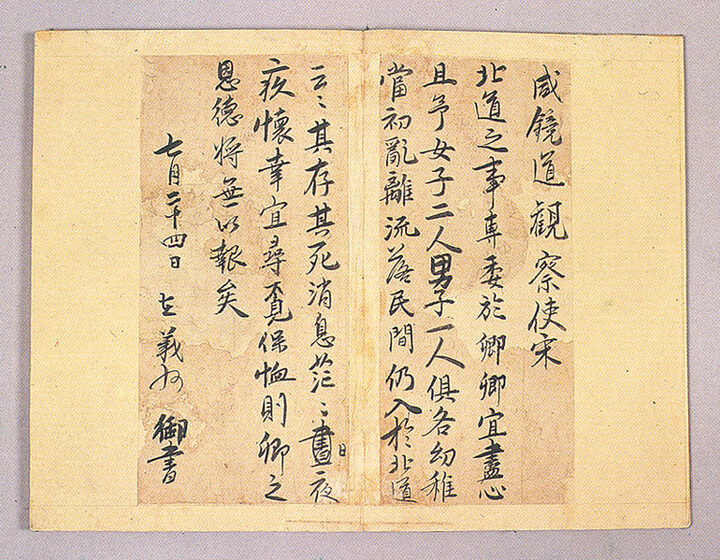 咸鏡道觀察使宋
北道之事專委於卿卿宜盡心
且予女子二人男子一人俱各幼稚
當初亂離流落民間仍入於北道
云〻其存其死消息茫〻晝夜
疚懷幸宜尋覓保恤則卿之
恩德將無以報矣
七月二十四日 在義州 御書